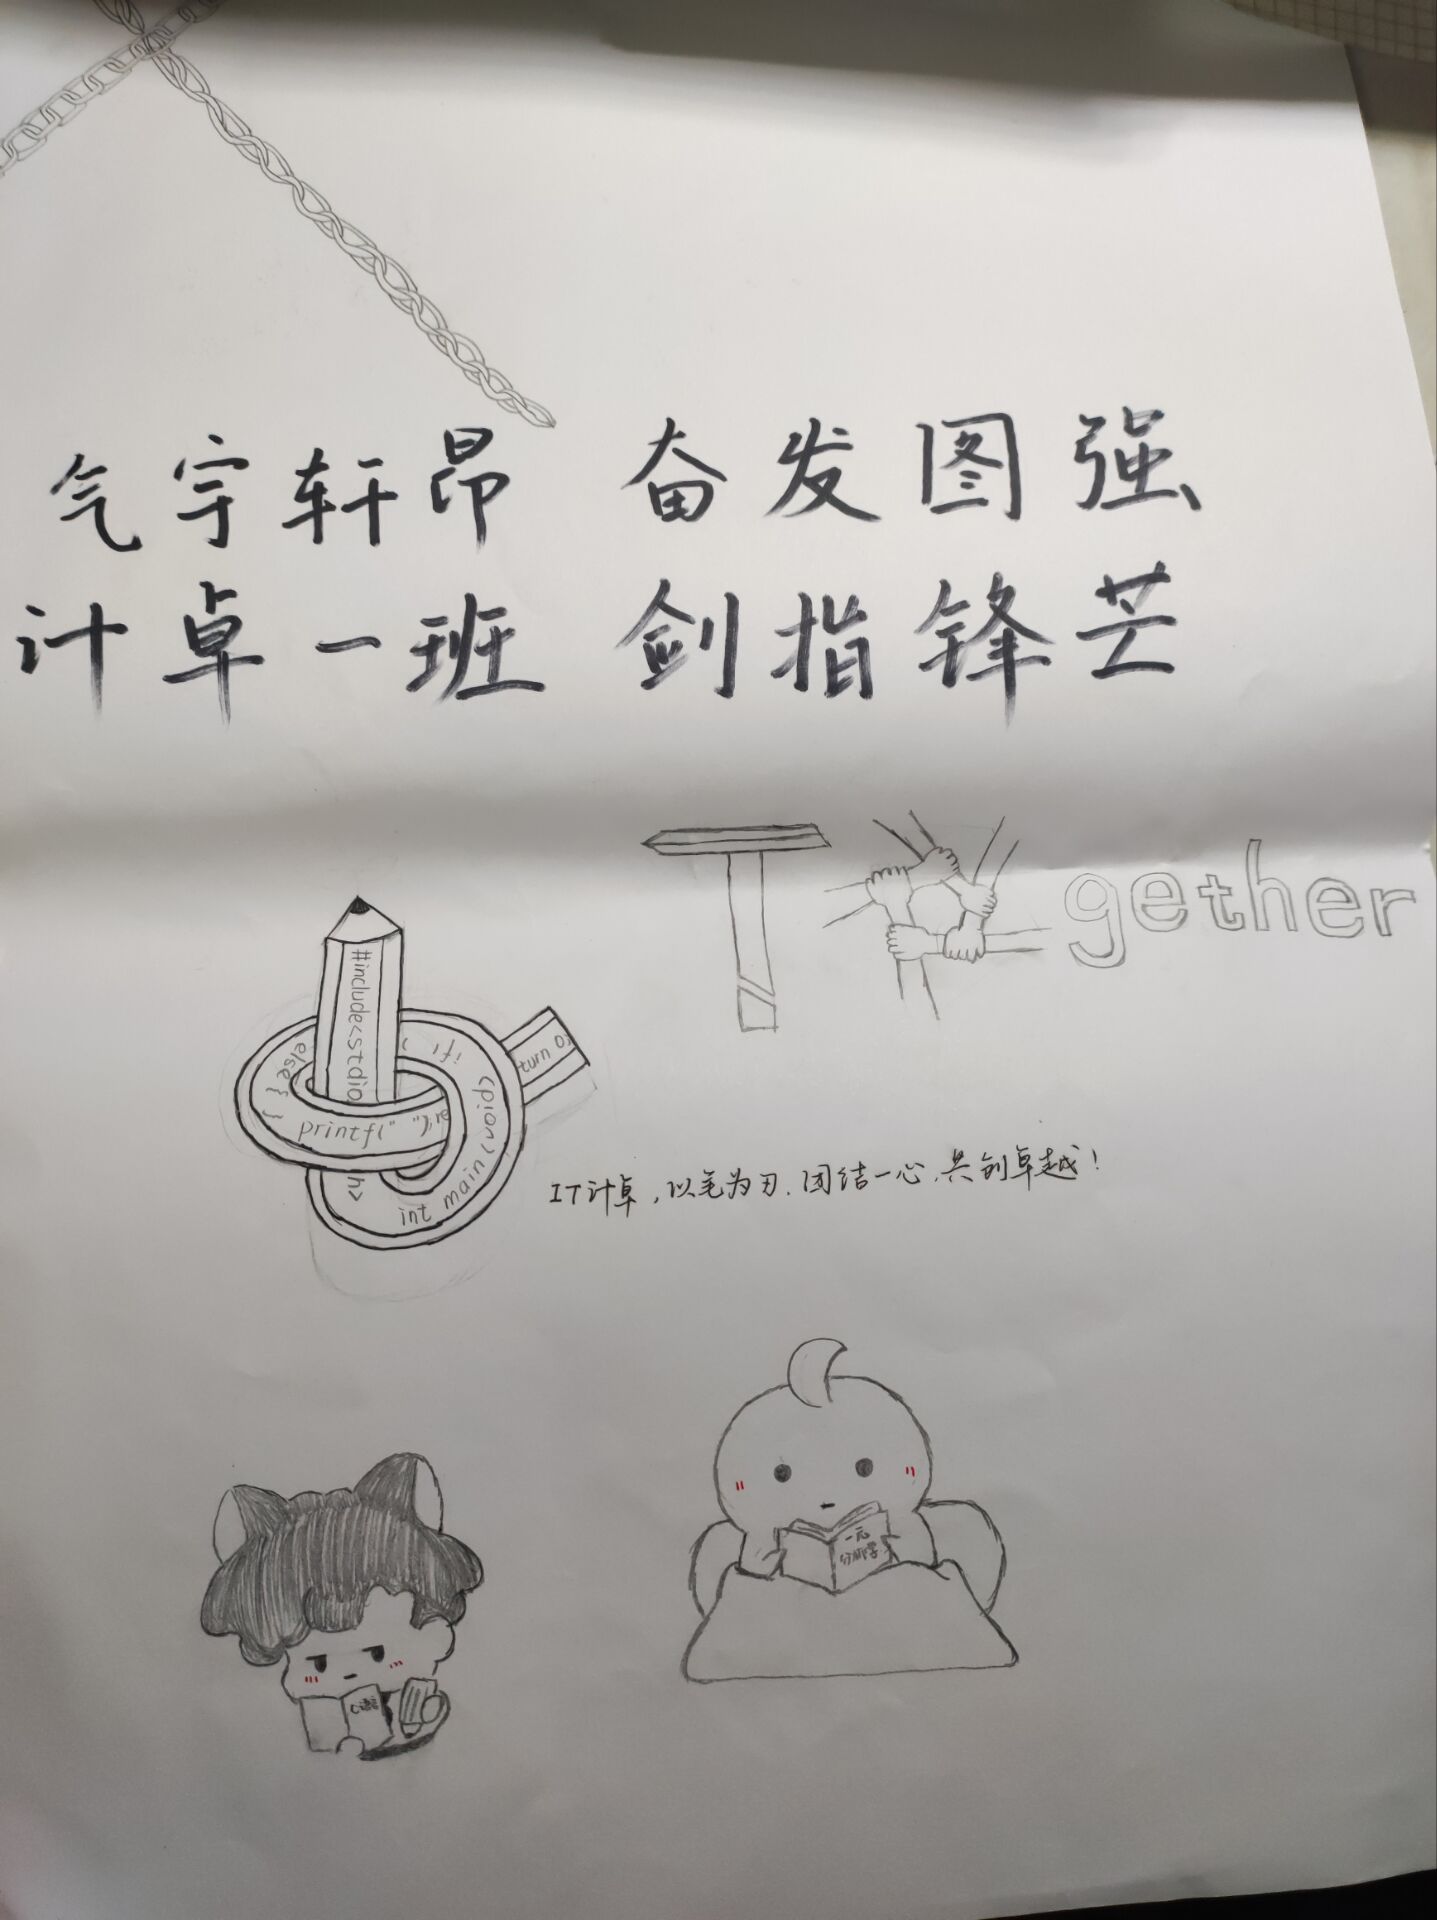 气宇轩昂 奋发图强
计卓一班 剑指锋芒
T gether
#include<stdio
h>
int main
(void)
if( )
else{ }
printf(" ");re
turn 0;
IT计卓，以笔为刃，团结一心，共创卓越！
C语言
一元
分析学